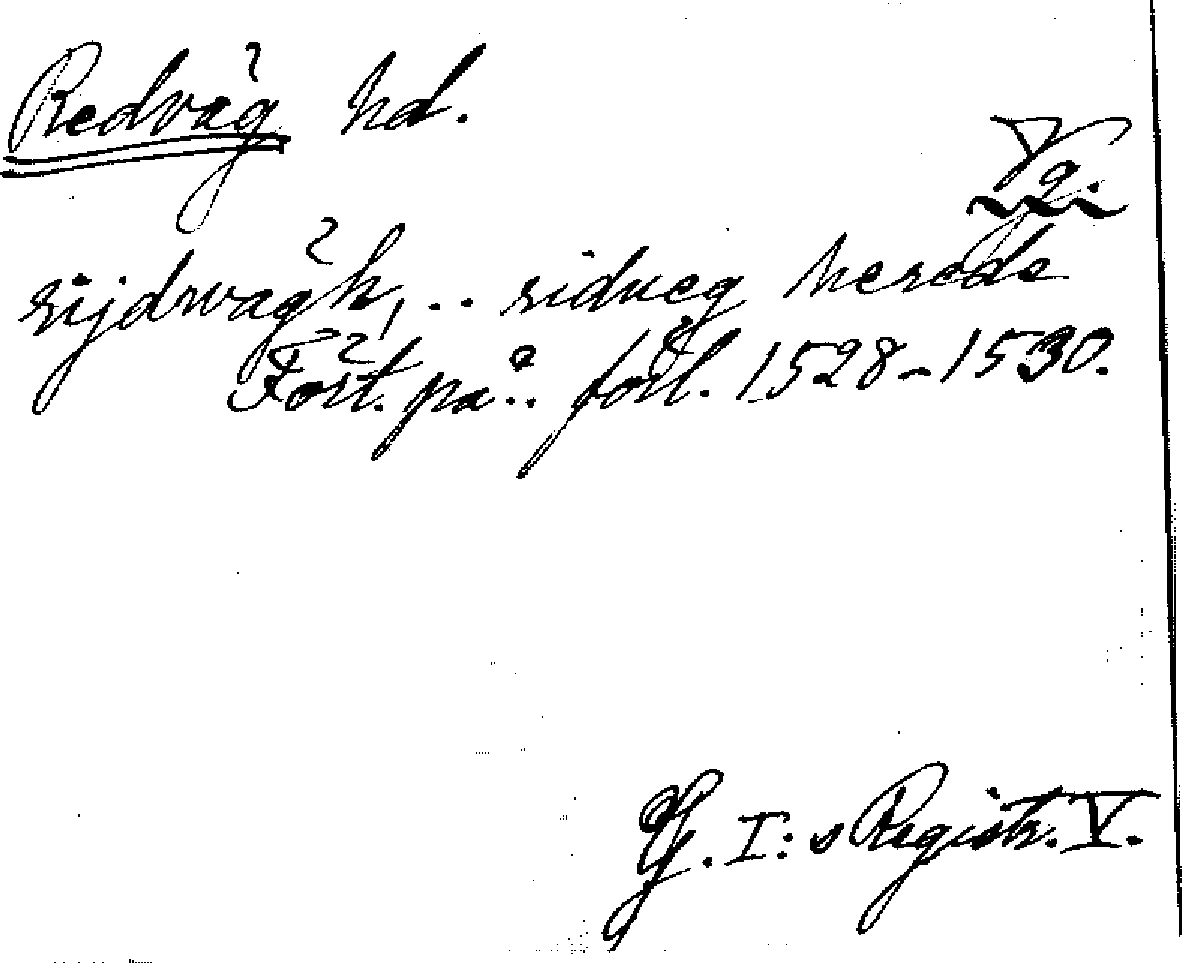 Redväg hd.
Vg.
rijdwägh, .. ridueg herede
Fört. på .. förl. 1528-1530.
G. I:s Registr. V.